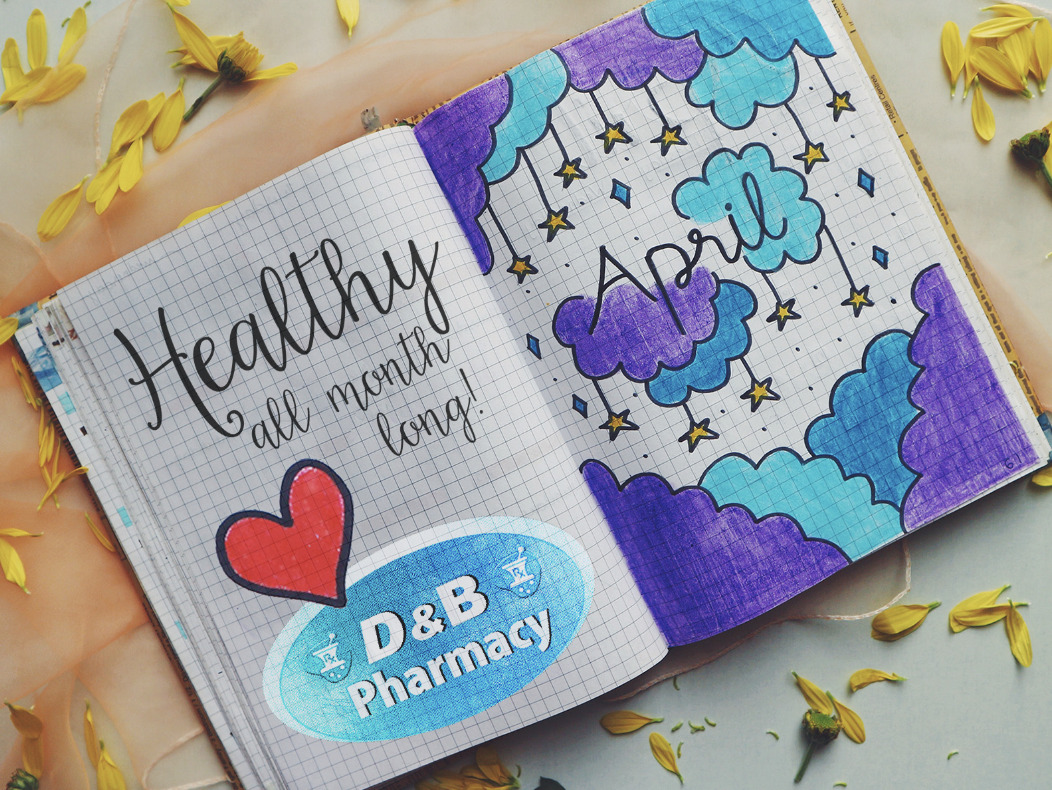 Healthy
all month
long!
D&B
Pharmacy
Rx
Rx
April